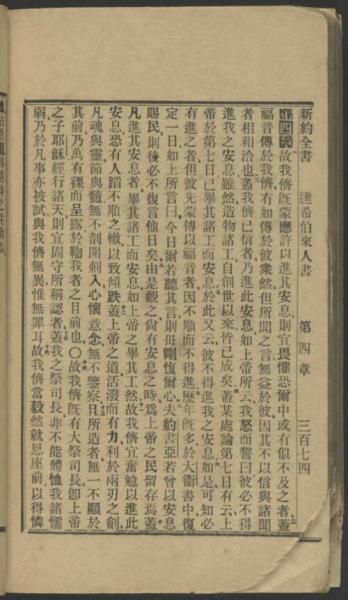 新約全書 達希伯來人書 第四章 三百七四
第四章 故我儕旣蒙應許以進其安息則宜畏懼恐爾中或有似不及之者蓋
福音傳於我儕有如傳於彼衆然但所聞之言無益於彼因其不以信與諸聞
者相和洽也蓋我儕已信者乃進此安息如上帝所云我怒而誓曰彼必不得
進我之安息雖然造物諸工自創世以來皆已成矣蓋某處論第七日有云上
帝於第七日已畢其諸工而安息於此又云彼不得進我之安息如是可知必
有進之者但彼先蒙傳以福音者因不順而不得進歷年旣多於大衞書中復
定一日如上所言曰今日爾若聽其言則毋剛愎爾心夫約書亞若曾以安息
賜民則後必不復言他日矣由是觀之尙有安息之時爲上帝之民留存焉蓋
凡進其安息者畢其諸工而安息如上帝之畢其工然故我儕宜奮勉以進此
安息恐有人蹈不順之轍以致傾跌蓋上帝之道活潑而有力利於兩刃之劍
凡魂與靈節與髓無不剖開刺入心懷意念無不鑒察且所造者無一不顯於
其前乃萬有裸而呈露於鞫我者之目前也〇故我儕旣有大祭司長卽上帝
之子耶穌經行諸天則宜固守所稱認者蓋我之祭司長非不能體恤我諸懦
弱乃於凡事亦被試與我儕無異惟無罪耳故我儕當毅然就恩座前以得憐